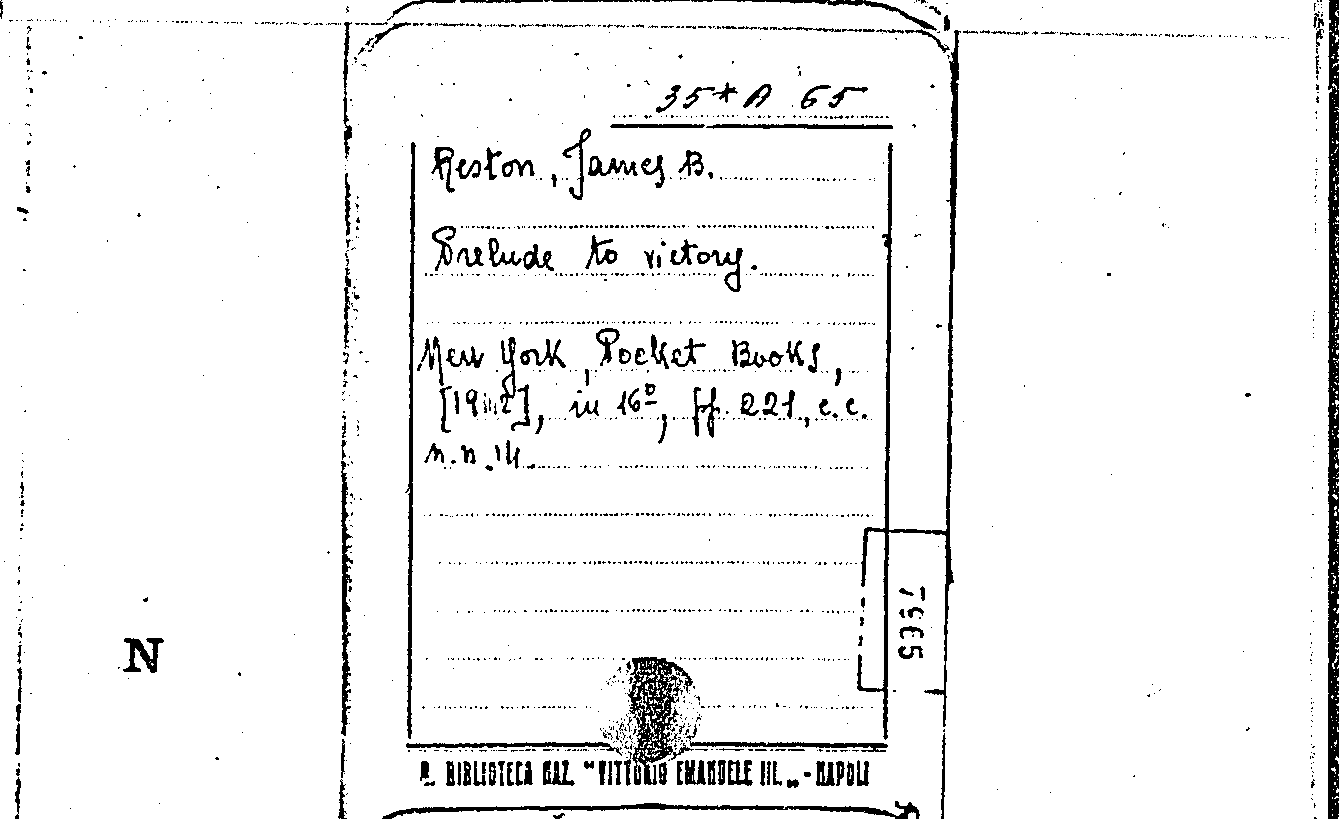 35*A 65
Reston, James B.
Prelude to victory.
New York, Pocket Books,
[1942], in 16º, pp. 221, c.c.
n.n. 14.
7965
N
R. BIBLIOTECA NAZ. "VITTORIO EMANUELE III.„ - NAPOLI